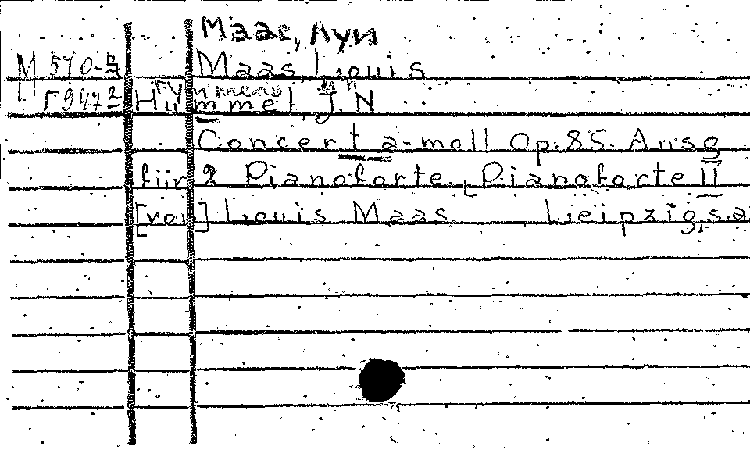 Маас, Луи
М 570-5 Maas, Louis
Г 947 2 Hummel, J. N
Гуммель
Concert a-moll Op. 85. Ausg
für 2 Pianoforte. Pianoforte II
[von] Louis Maas Leipzig, s.a